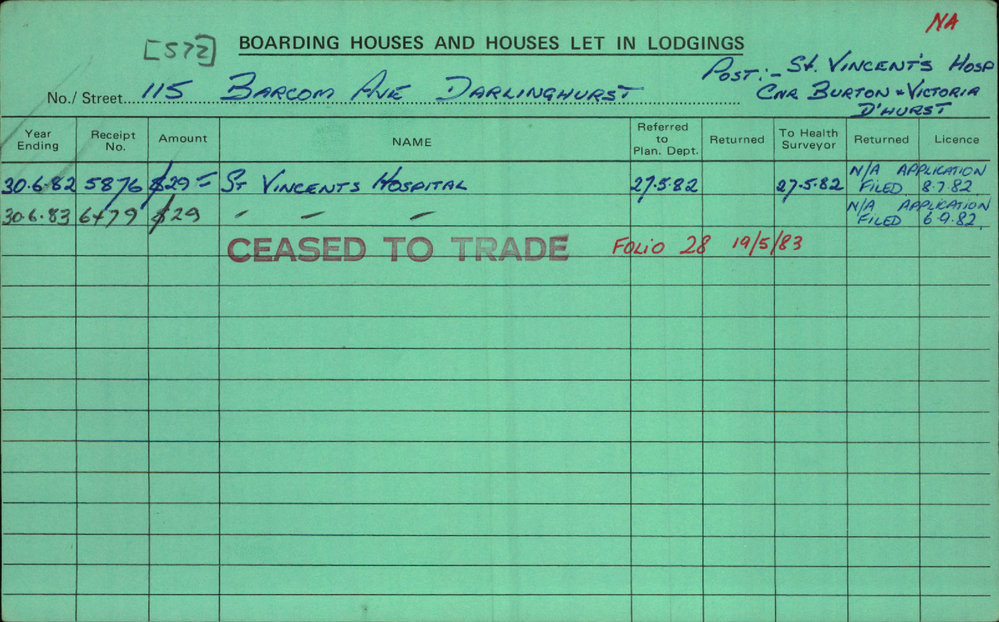 NA
[572] BOARDING HOUSES AND HOUSES LET IN LODGINGS
POST:- ST. VINCENT'S HOSP
No./ Street 115 BARCOM AVE DARLINGHURST CNR BURTON + VICTORIA
D'HURST
Year Ending Receipt No. Amount NAME Referred to Plan. Dept. Returned To Health Surveyor Returned Licence
30.6.82 5876 $29= ST VINCENTS HOSPITAL 27.5.82 27.5.82 N/A APPLICATION
FILED 8.7.82
30.6.83 6479 $29 " — — N/A APPLICATION
FILED 6.9.82.
CEASED TO TRADE FOLIO 28 19/5/83